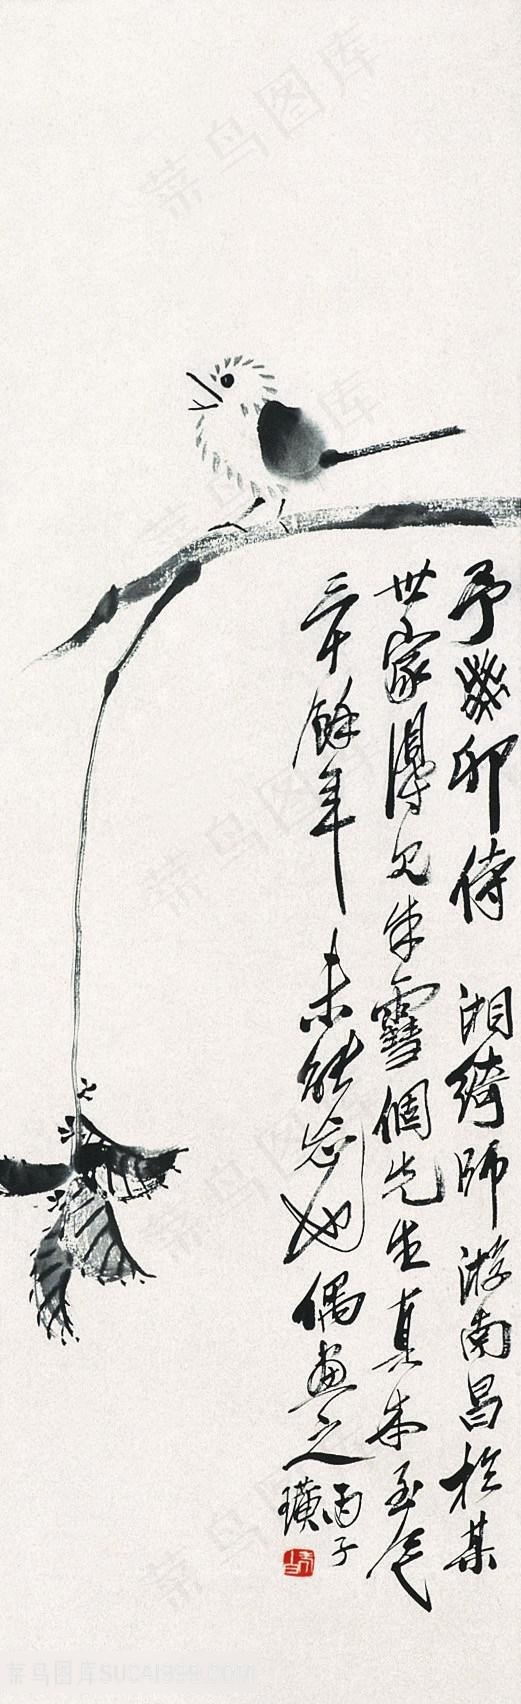 予癸卯侍 湘綺師游南昌於某
世家得見朱雪個先生真本至今
三十餘年未能忘也偶畫之
丙子
璜
菜鸟图库
菜鸟图库
菜鸟图库
菜鸟图库
菜鸟图库
菜鸟图库SUCAI999.COM